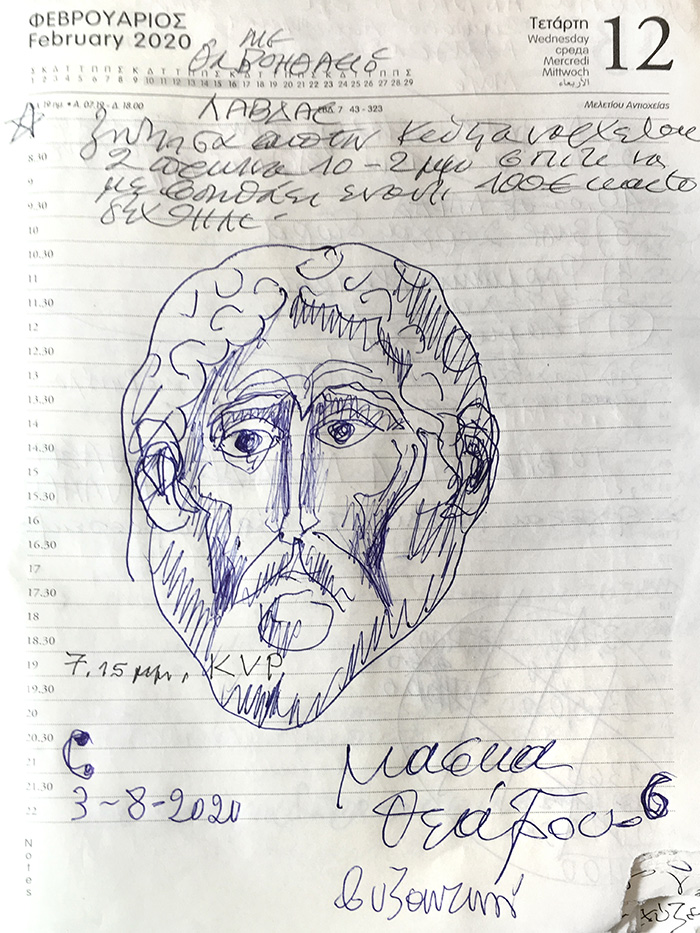 ΦΕΒΡΟΥΑΡΙΟΣ
February 2020
Τετάρτη
Wednesday
среда
Mercredi
Mittwoch
الأربعاء
12
ΜΕ
Σ Κ Δ Τ Τ Π Π Σ Κ Δ Τ Τ Π Π Σ Κ Δ Τ Τ Π Π Σ Κ Δ Τ Τ Π Π Σ
1 2 3 4 5 6 7 8 9 10 11 12 13 14 15 16 17 18 19 20 21 22 23 24 25 26 27 28 29
19ημ. • Α. 07.19 - Δ. 18.00
ΛΑΒΔΑΣ
εβδ. 7 43 - 323
Μελετίου Αντιοχείας
ζήτησα από την
8.30
2 πρωινα 10-2 μμ σπίτι να
9
με βοηθάει έναντι 100€
9.30
δέχθηκε.
10
10.30
11
11.30
12
12.30
13
13.30
14
14.30
15
15.30
16
16.30
17
17.30
18
18.30
19
7.15 μμ, KVP
19.30
20
20.30
21
21.30
3-8-2020
22
Μάσκα
θεάτρου 6
βυζαντινή
Notes